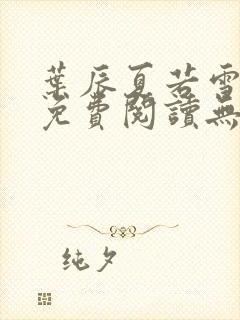 葉辰夏若雪
免費閱讀無
纯夕